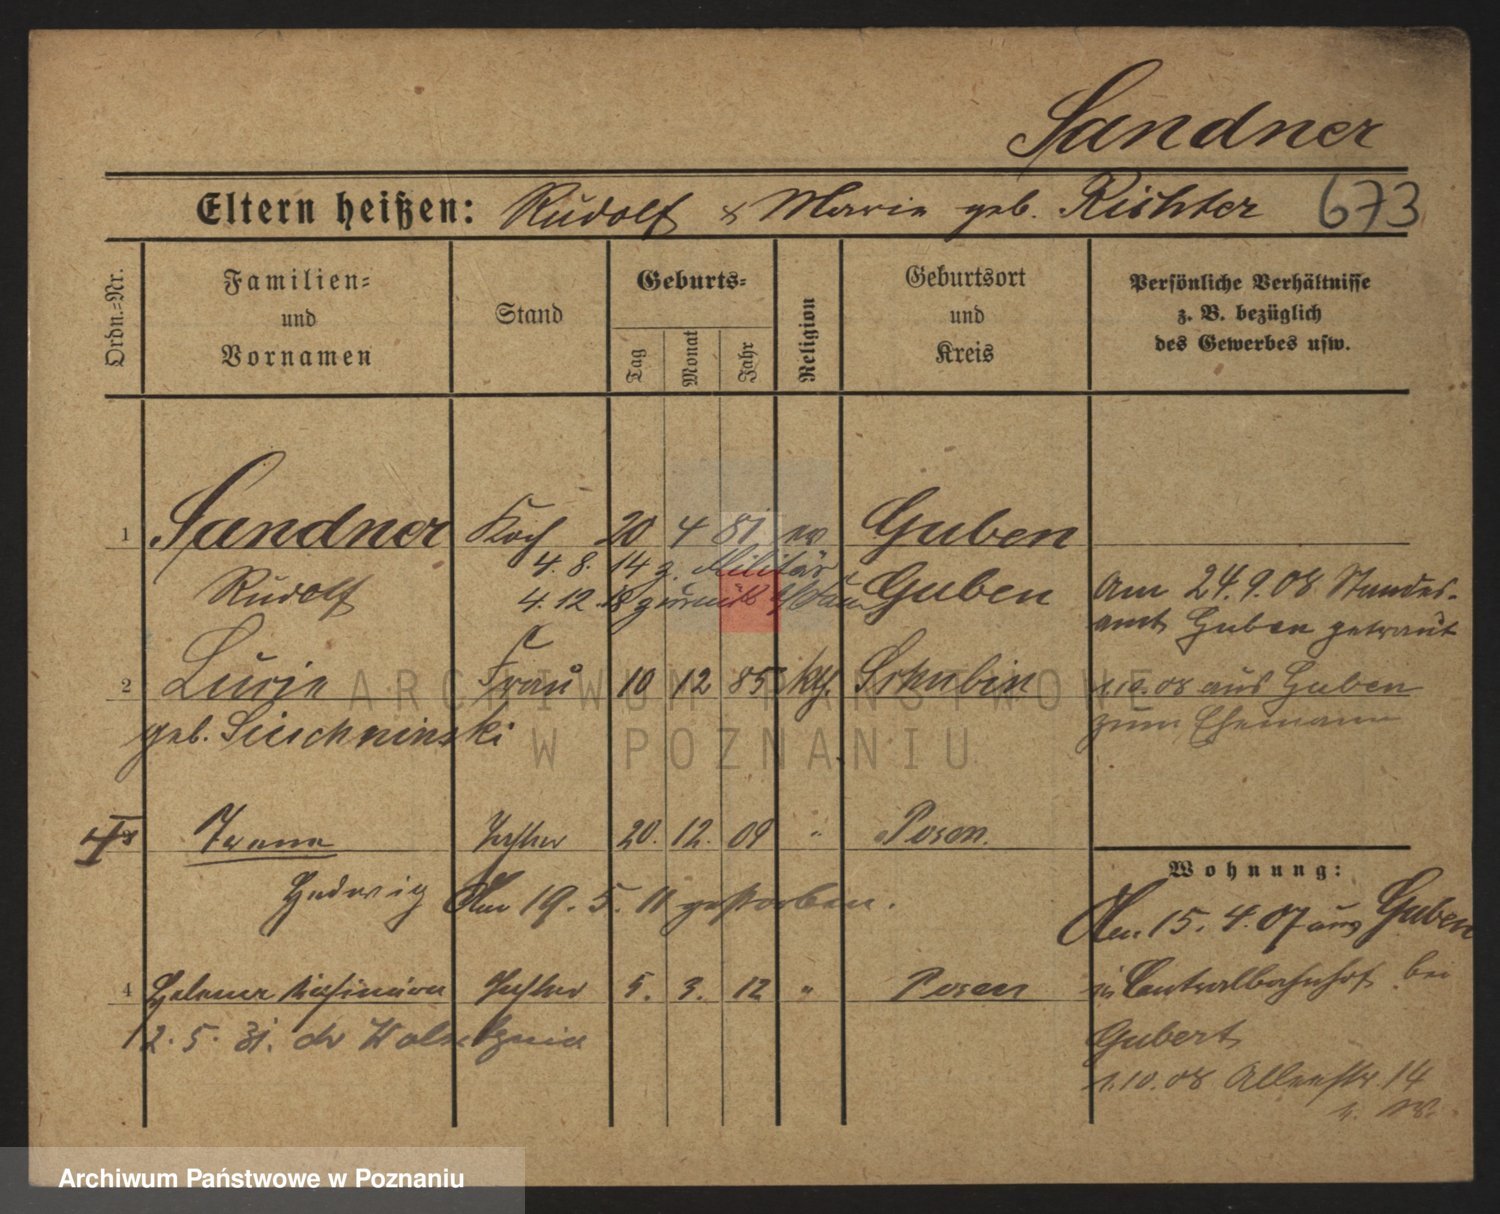 Sandner
Eltern heißen: Rudolf & Marie geb. Richter 673
Ordn.-Nr.
Familien- und Vornamen
Stand
Geburts-
Tag Monat Jahr
Religion
Geburtsort und Kreis
Persönliche Verhältnisse
z. B. bezüglich
des Gewerbes usw.
1 Sandner Koch 20 4 81 Guben
4. 8. 14 z. Militär
Rudolf 4. 12. 18 zurück Guben
Am 24.9.08 Standes-
amt Guben getraut
2 Lucie Frau 10 12 85 kth. Schubin 1.10.08 aus Guben
geb. zum Ehemann
Irene Tochter 20. 12. 09 " Posen.
Hedwig Am 19. 5. 11 gestorben.
Wohnung:
Am 15. 4. 07 aus Guben
4 Helene Tochter 5. 3. 12 " Posen
in Centralbahnhof bei
12. 5. 31.
Gubert
1.10.08 14
ARCHIWUM PAŃSTWOWE
W POZNANIU
Archiwum Państwowe w Poznaniu